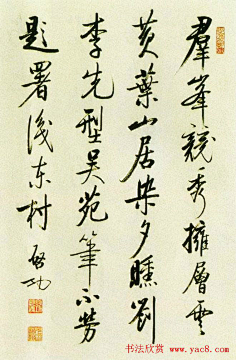 群峯競秀擁層雲
黄葉山居染夕曛劉
李先型吴苑筆不勞
題署識东村
啓功
书法欣赏
www.yac8.com